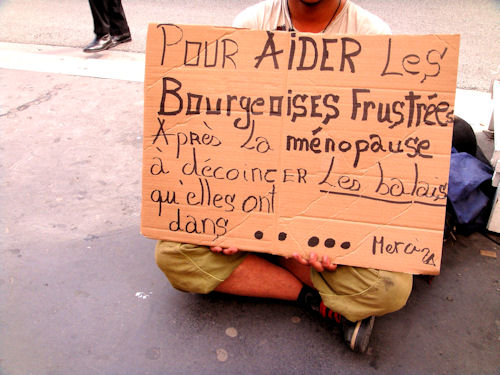 POUR AIDER LES
BOURGEOISES FRUSTRÉES
APRÈS LA ménopause
à décoincER Les balais
qu'elles ont
dans ..... Merci